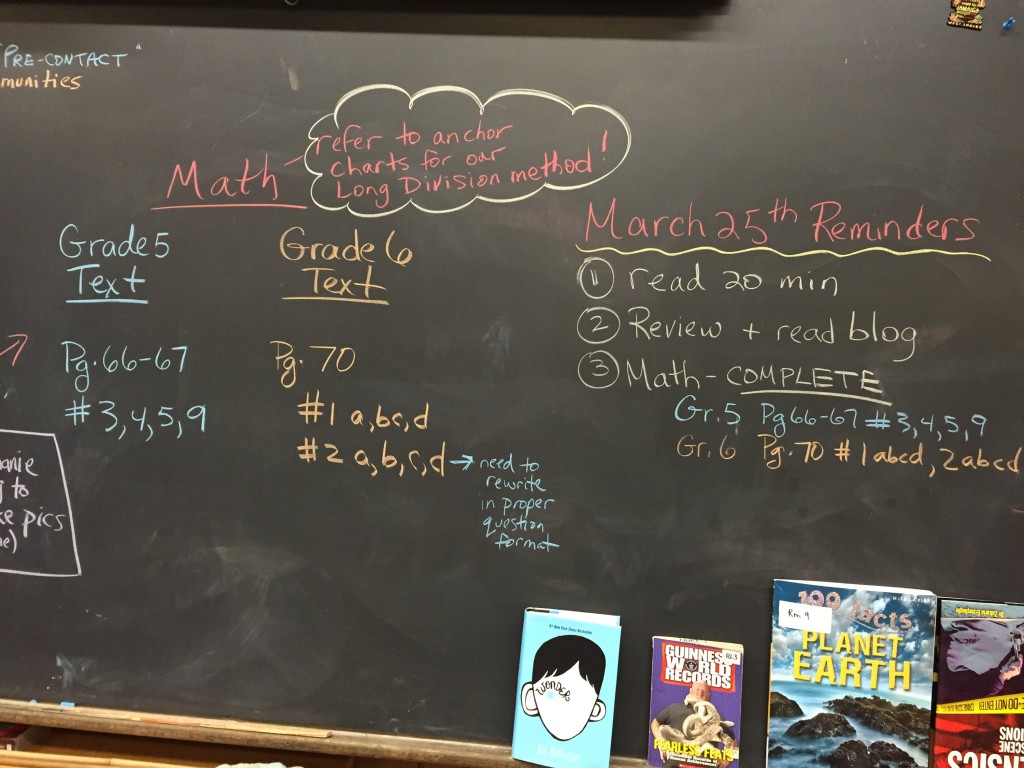 "PRE-CONTACT"
munities
Math
refer to anchor
charts for our
Long Division method!
Grade 5
Text
Pg. 66-67
#3,4,5,9
Grade 6
Text
Pg. 70
#1 a,bc,d
#2 a,b,c,d → need to
rewrite
in proper
question
format
March 25th Reminders
① read 20 min
② Review + read blog
③ Math - COMPLETE
Gr. 5 Pg 66-67 #3,4,5,9
Gr. 6 Pg. 70 #1abcd, 2abcd
to
pics
#1 New York Times Bestseller
WONDER
GUINNESS
WORLD
RECORDS
FEARLESS FEATS
100 facts
Rm 9
PLANET
EARTH
DO NOT ENTER
JAMAICA